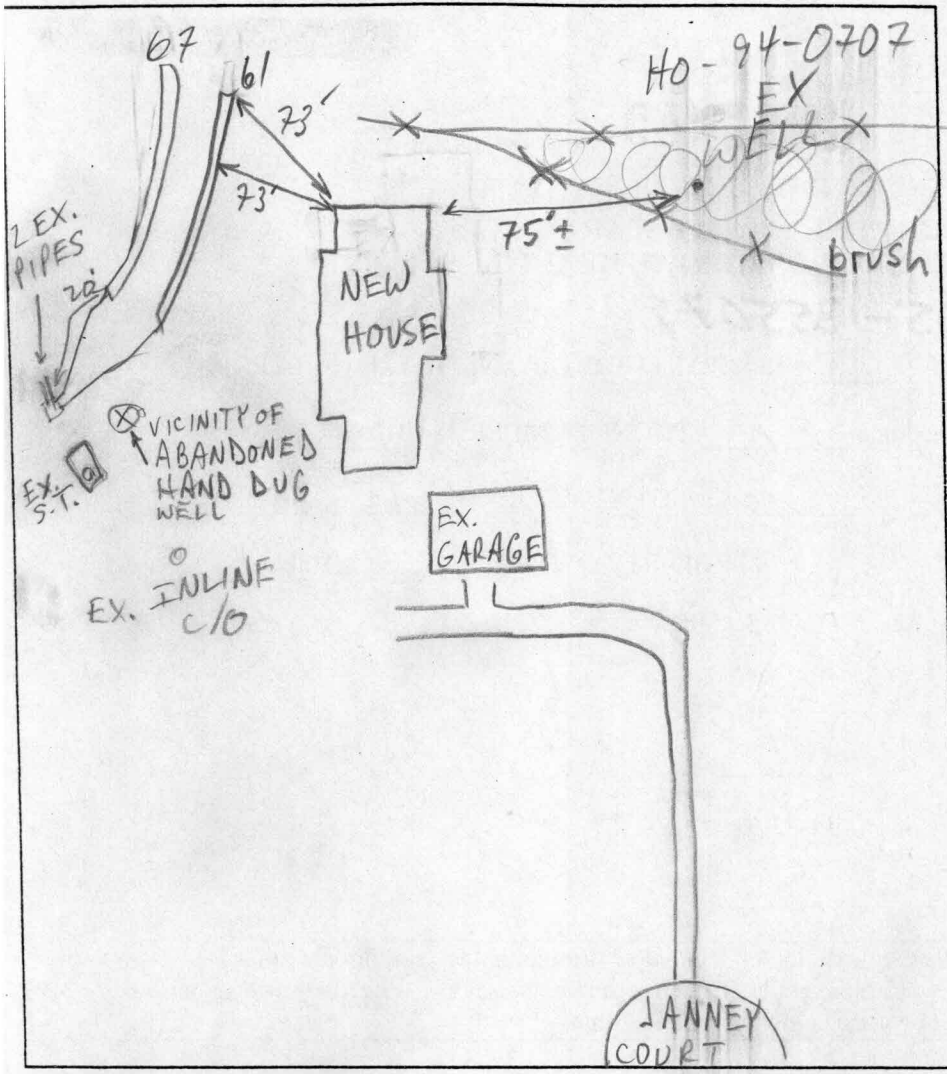 67
61
HO - 94-0707
EX
WELL
73'
73'
75'±
brush
2 EX.
PIPES
20'
NEW
HOUSE
VICINITY OF
ABANDONED
HAND DUG
WELL
EX.
S.T.
EX. INLINE
C/O
EX.
GARAGE
JANNEY
COURT